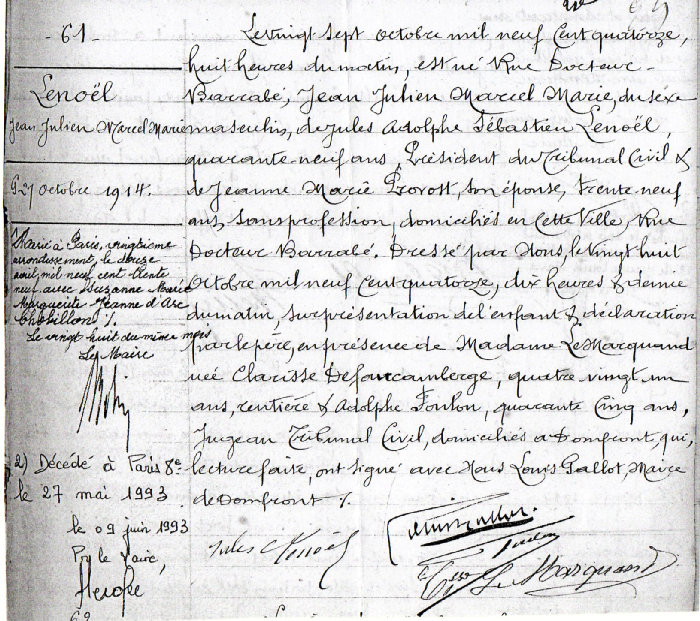 - 61 -
Lenoël
Jean Julien Marcel Marie
27 octobre 1914.
Marié à Paris, vingtième
arrondissement, le douze
avril mil neuf cent trente
neuf avec Suzanne Marie
Marguerite Jeanne d'Arc
%.
Le vingt huit du même mois
Le Maire
2) Décédé à Paris 8e
le 27 mai 1993
le 09 juin 1993
Pr le Maire,
Le vingt sept octobre mil neuf cent quatorze,
huit heures du matin, est né Rue Docteur-
Barrabé, Jean Julien Marcel Marie, du sexe
masculin, de Jules Adolphe Sébastien Lenoël,
quarante-neuf ans, Président du Tribunal Civil &
de Jeanne Marie Provost, son épouse, trente neuf
ans, sans profession, domiciliés en cette Ville, Rue
Docteur Barrabé. Dressé par Nous, le vingt huit
octobre mil neuf cent quatorze, dix heures & demie
du matin, sur présentation de l'enfant & déclaration
par le père, en présence de Madame Le Marquand
née Clarisse, quatre vingt un
ans, rentière & Adolphe Toulon, quarante cinq ans,
Juge au Tribunal Civil, domiciliés à Domfront, qui,
lecture faite, ont signé avec Nous Louis Gallot, Maire
de Domfront %.
Jules Lenoël
Le Marquand
62